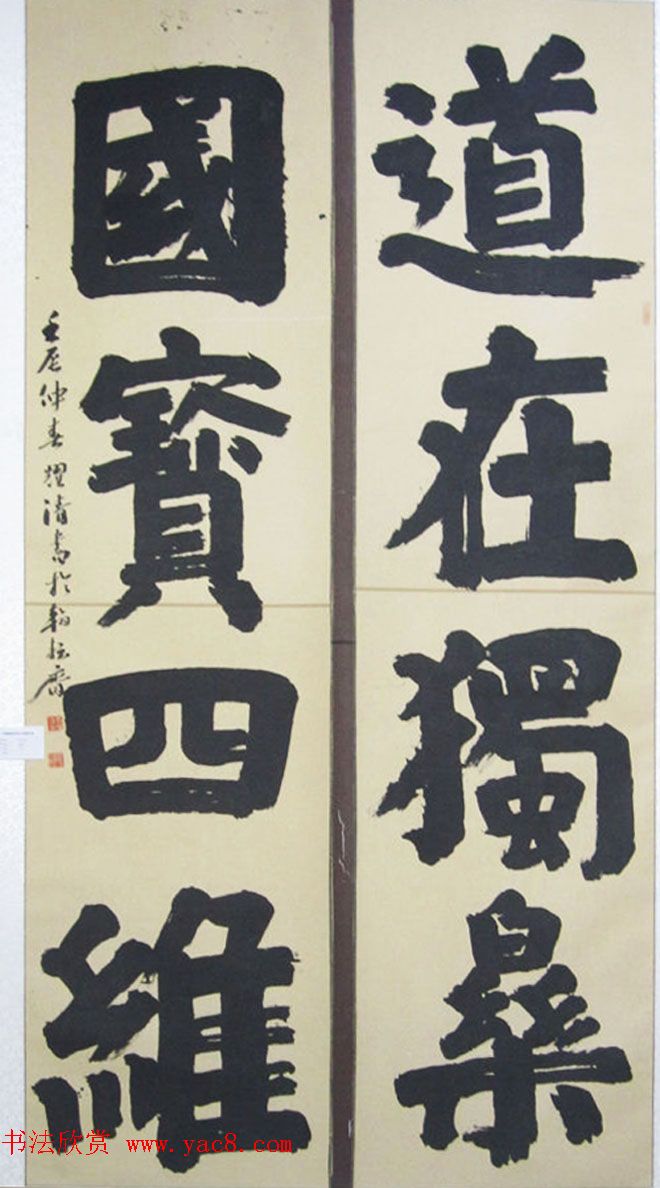 道在獨樂
國寶四維
壬辰仲春耀清書於翰齋
书法欣赏 www.yac8.com